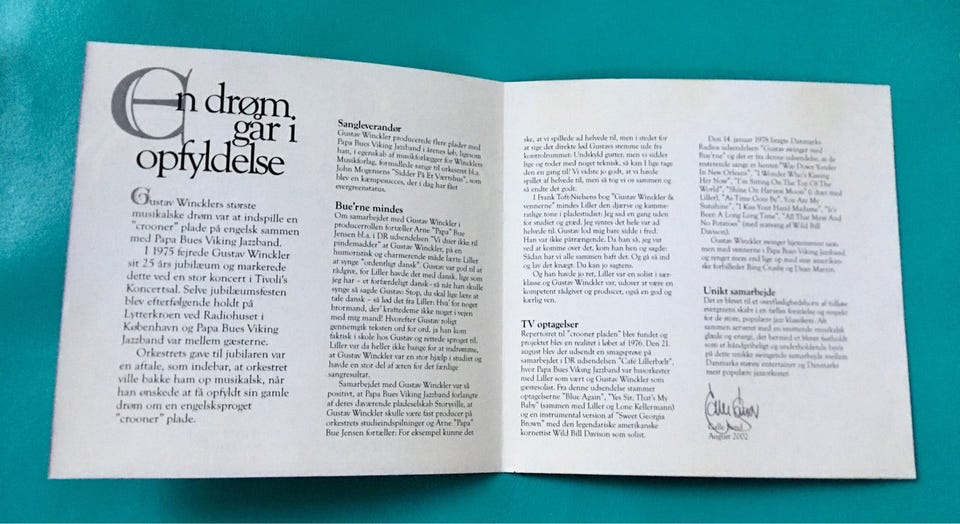 En drøm
går i
opfyldelse
Gustav Wincklers største
musikalske drøm var at indspille en
"crooner" plade på engelsk sammen
med Papa Bues Viking Jazzband.
I 1975 fejrede Gustav Winckler
sit 25 års jubilæum og markerede
dette ved en stor koncert i Tivoli's
Koncertsal. Selve jubilæumsfesten
blev efterfølgende holdt på
Lytterkroen ved Radiohuset i
København og Papa Bues Viking
Jazzband var mellem gæsterne.
Orkestrets gave til jubilaren var
en aftale, som indebar, at orkestret
ville bakke ham op musikalsk, når
han ønskede at få opfyldt sin gamle
drøm om en engelsksproget
"crooner" plade.
Sangleverandør
Gustav Winckler producerede flere plader med
Papa Bues Viking Jazzband i årenes løb, ligesom
han, i egenskab af musikforlægger for Wincklers
Musikforlag, formidlede sange til orkestret bl.a.
John Mogensens "Sidder På Et Værtshus", som
blev en kæmpesucces, der i dag har fået
evergreenstatus.
Bue'rne mindes
Om samarbejdet med Gustav Winckler i
producerrollen fortæller Arne "Papa" Bue
Jensen bl.a. i DR udsendelsen "Vi duer ikke til
pindemadder" at Gustav Winckler, på en
humoristisk og charmerende måde lærte Liller
at synge "ordentlig dansk". Gustav var god til at
rådgive, for Liller havde det med dansk, lige som
jeg har – et forfærdeligt dansk – så når han skulle
synge så sagde Gustav: Stop, du skal lige lære at
tale dansk – så lød det fra Liller: Hva' for noget
brormand, der' kraftedeme ikke noget i vejen
med mig mand! Hvorefter Gustav roligt
gennemgik teksten ord for ord, ja han kom
faktisk i skole hos Gustav og rettede sproget til.
Liller var da heller ikke bange for at indrømme,
at Gustav Winckler var en stor hjælp i studiet og
havde en stor del af æren for det færdige
sangresultat.
Samarbejdet med Gustav Winckler var så
positivt, at Papa Bues Viking Jazzband forlangte
af deres daværende pladeselskab Storyville, at
Gustav Winckler skulle være fast producer på
orkestrets studieindspilninger og Arne "Papa"
Bue Jensen fortæller: For eksempel kunne det
ske, at vi spillede ad helvede til, men i stedet for
at sige det direkte lød Gustavs stemme ude fra
kontrolrummet: Undskyld gutter, men vi sidder
lige og roder med noget teknisk, så kan I lige tage
den én gang til! Vi vidste jo godt, at vi havde
spillet af helvede til, men så tog vi os sammen og
så endte det godt.
I Frank Toft-Nielsens bog "Gustav Winckler &
vennerne" mindes Liller den djærve og kamme-
ratlige tone i pladestudiet: Jeg sad en gang uden
for studiet og græd. Jeg syntes det hele var ad
helvede til. Gustav lod mig bare sidde i fred.
Han var ikke påtrængende. Da han så, jeg var
ved at komme over det, kom han hen og sagde:
Sådan har vi alle sammen haft det. Og gå så ind
og lav det knægt. Du kan jo sagtens.
Og han havde jo ret, Liller var en solist i sær-
klasse og Gustav Winckler var, udover at være en
kompetent rådgiver og producer, også en god og
kærlig ven.
TV optagelser
Repertoiret til "crooner pladen" blev fundet og
projektet blev en realitet i løbet af 1976. Den 21.
august blev der udsendt en smagsprøve på
samarbejdet i DR udsendelsen "Café Lillerbælt",
hvor Papa Bues Viking Jazzband var husorkester
med Liller som vært og Gustav Winckler som
gæstesolist. Fra denne udsendelse stammer
optagelserne "Blue Again", "Yes Sir, That's My
Baby" (sammen med Liller og Lone Kellermann)
og en instrumental version af "Sweet Georgia
Brown" med den legendariske amerikanske
kornettist Wild Bill Davison som solist.
Den 14. januar 1979 bragte Danmarks
Radios udsendelsen "Gustav swinger med
Bue'rne" og det er fra denne udsendelse, at de
resterende sange er hentet: "Way Down Yonder
In New Orleans", "I Wonder Who's Kissing
Her Now", "I'm Sitting On The Top Of The
World", "Shine On Harvest Moon" (i duet med
Liller), "As Time Goes By", "You Are My
Sunshine", "I Kiss Your Hand Madame", "It's
Been A Long Long Time", "All That Meat And
No Potatoes" (med scatsang af Wild Bill
Davison).
Gustav Winckler swinger hjemmevant sam-
men med vennerne i Papa Bues Viking Jazzband
og synger mere end lige op med sine amerikan-
ske forbilleder Bing Crosby og Dean Martin.
Unikt samarbejde
Det er blevet til et overflødighedshorn af tidløse
evergreens skabt i en fælles forståelse og respekt
for de store, populære jazz klassikere. Alt
sammen serveret med en smittende musikalsk
glæde og energi, der hermed er blevet fastholdt
som et håndgribeligt og underholdende bevis
på dette unikke swingende samarbejde mellem
Danmarks største entertainer og Danmarks
mest populære jazzorkester.
August 2002